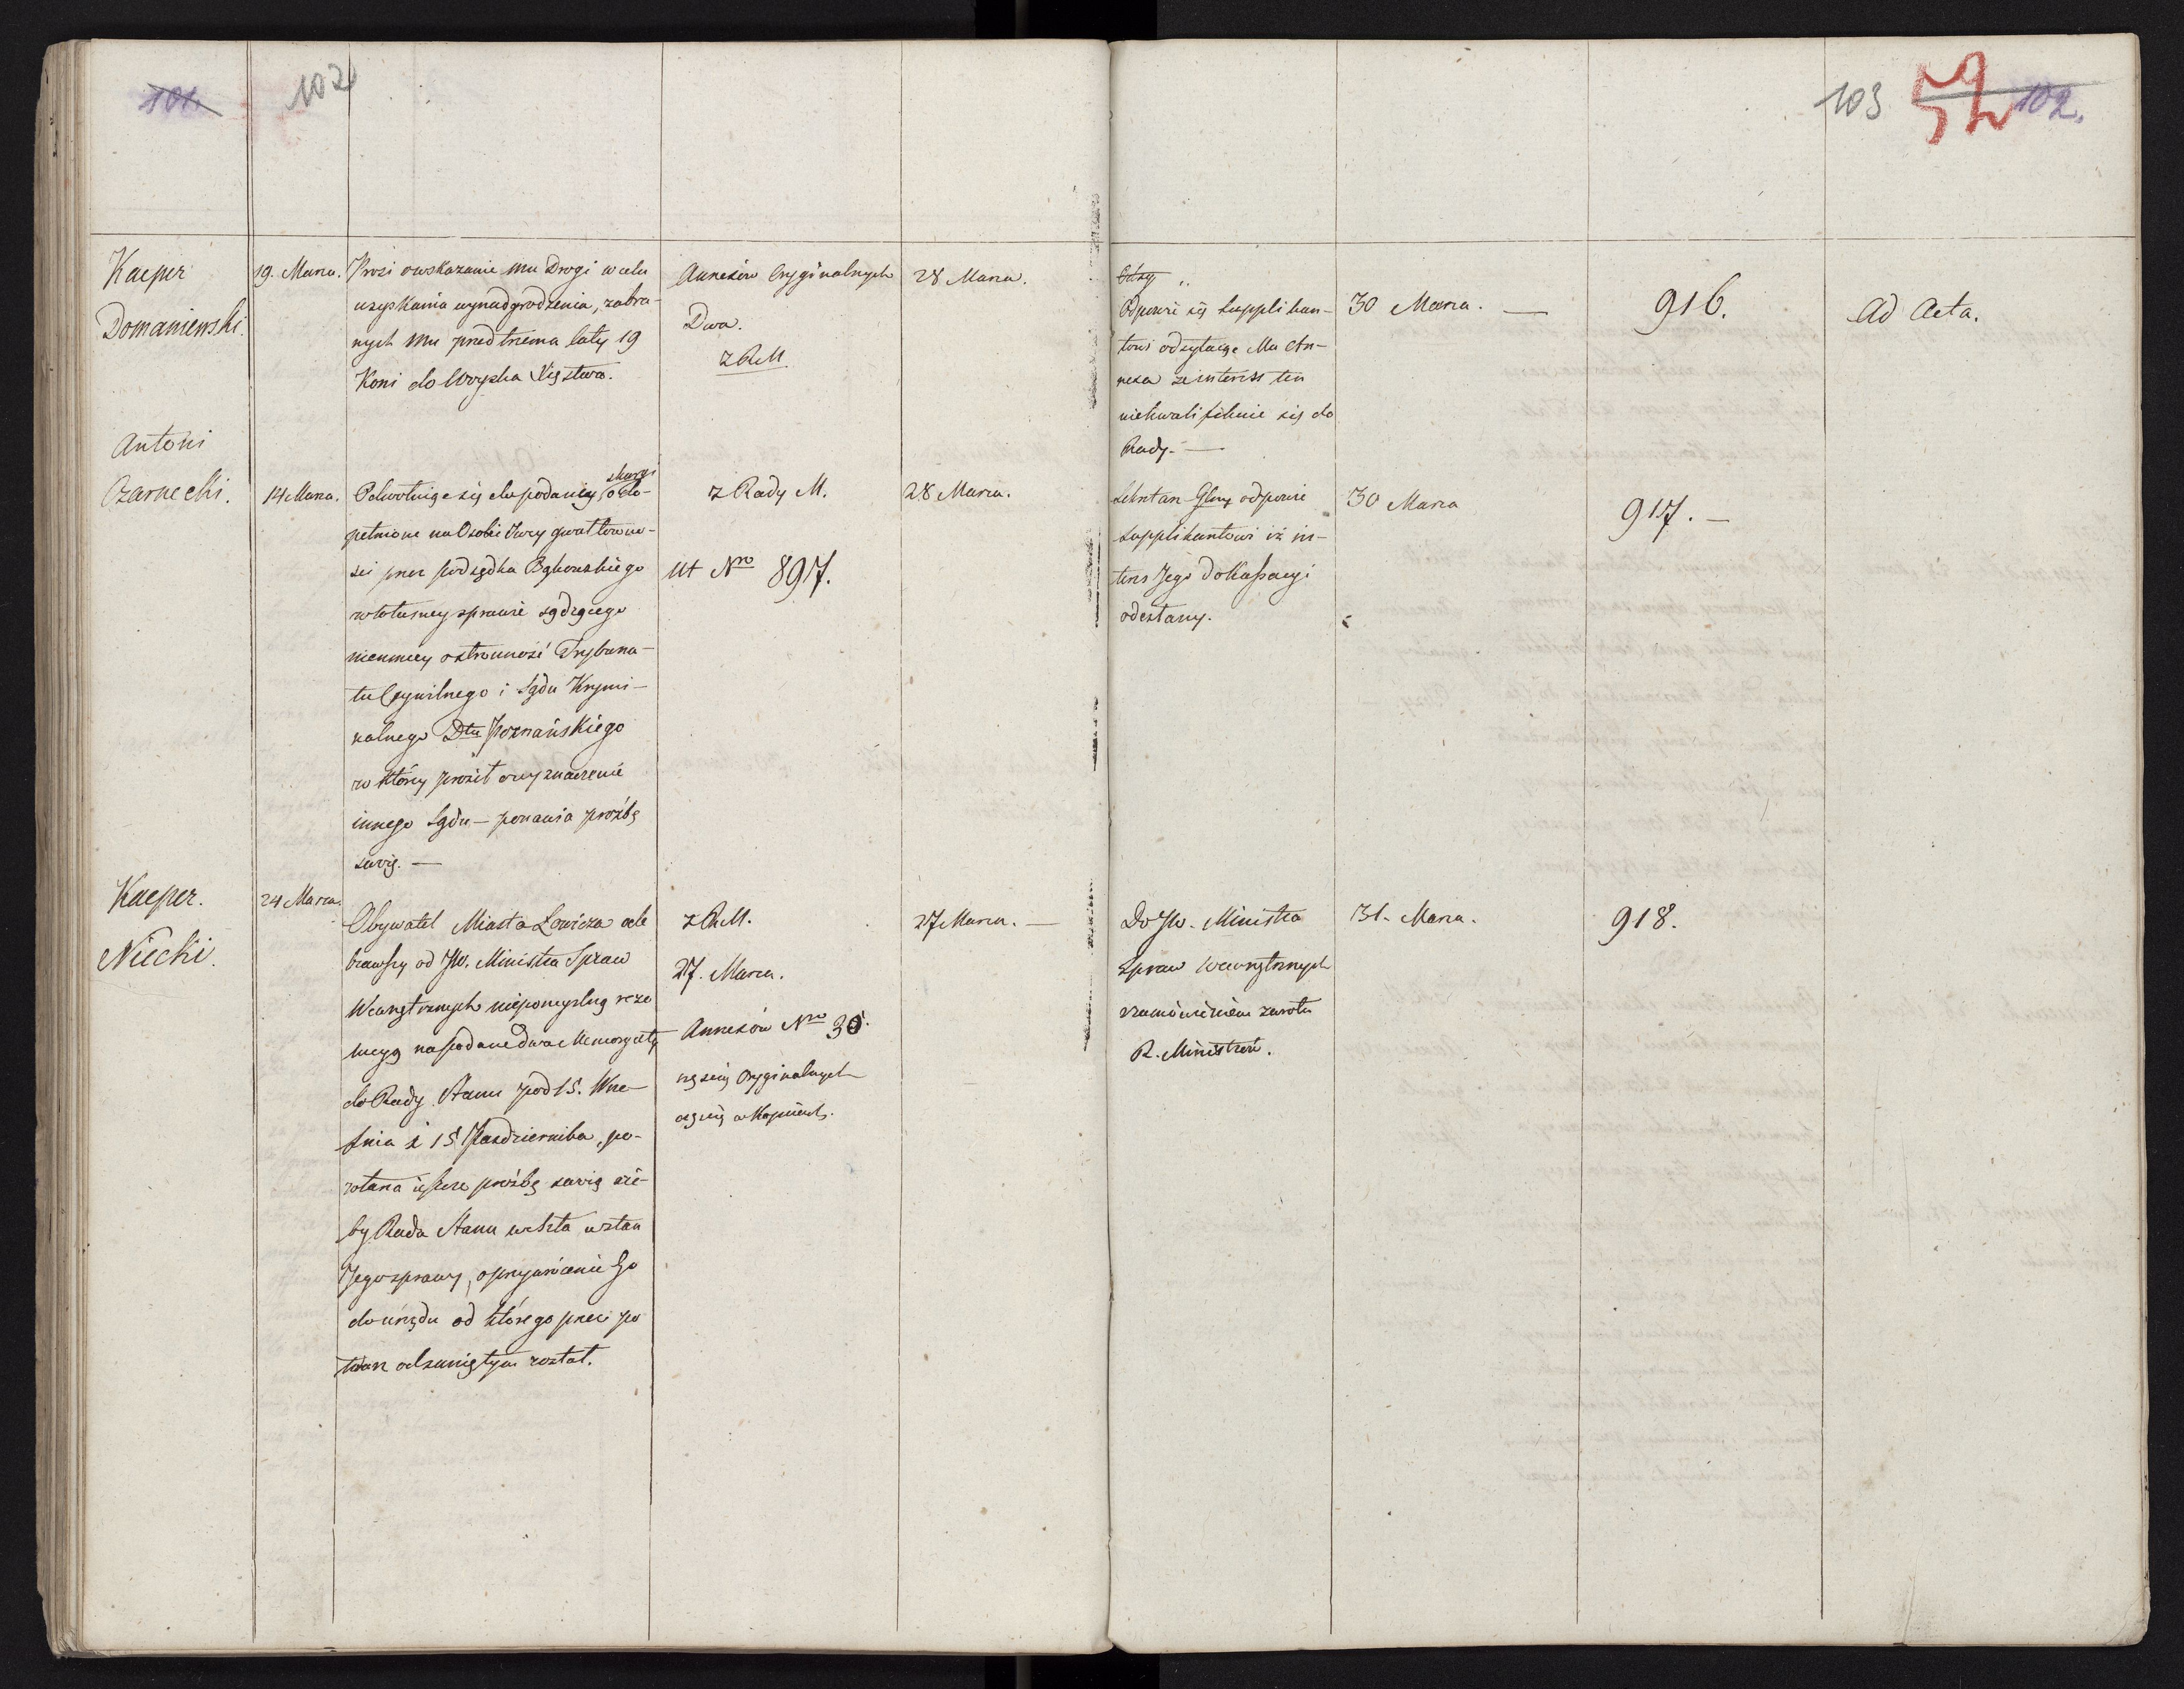 101.
102
103
52
102.
Kacper
Domaniewski.
19. Marca.
Prosi o wskazanie mu Drogi w celu
uzyskania wynadgrodzenia, zabra-
nych mu przed trzema laty 19
Koni do Woyska Xięstwa.
Annexów Oryginalnych
Dwa.
z R M.
28 Marca.
Odpowie się supplikan-
towi odsyłaiąc Mu An-
nexa że interess ten
niekwalifikuie się do
Rady. —
30 Marca. —
916.
Ad Acta.
Antoni
Czarnecki.
14 Marca.
Odwołuiąc się do podaney skargi o do-
pełnione na Osobie Swey gwałtowno-
ści przez Podsędka Bąkowskiego
w własney sprawie sądzącego
niemniey ostronność Trybuna-
łu Cywilnego i Sądu Krymi-
nalnego Dtu Poznańskiego
w którey prosił o wyznaczenie
innego Sądu — ponawia prośbę
swoią. —
z Rady M.
Ut Nro 897.
28 Marca.
Sekretarz Glny odpowie
supplikantowi iż in-
teress Jego do Kassacyi
odesłany.
30 Marca
917. —
Kacper.
Niecki.
24 Marca.
Obywatel Miasta Łowicza ode
brawszy od JW. Ministra Spraw
Wewnętrznych niepomyślną rezo
lucyą na podane dwa Memoryały
do Rady Stanu pod 15. Wrze-
śnia i 15 Pazdziernika, po-
wtarza ieszcze prośbę swoią aże-
by Rada Stanu weszła w stan
Jego sprawy, o przywrócenie Go
do urzędu od którego przez po
twarz odsuniętym został.
z R M.
27. Marca.
Annexów Nro 30.
częścią Oryginalnych
częścią w Kopiach.
27 Marca. —
Do JW. Ministra
Spraw Wewnętrznych
z zamówieniem zwrotu
R. Ministrów.
31. Marca.
918.